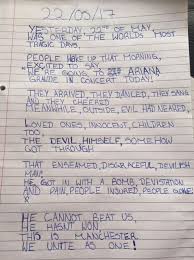 22/05/17
YESTERDAY, 22nd OF MAY,
WAS ONE OF THE WORLDS MOST
TRAGIC DAYS,
PEOPLE WOKE UP THAT MORNING,
EXCITED TO SAY,
WE'RE GOING TO SEE ARIANA
GRANDE IN CONCERT TODAY!
THEY ARRIVED, THEY DANCED, THEY SANG
AND THEY CHEERED
MEANWHILE, OUTSIDE, EVIL HAD NEARED,
LOVED ONES, INNOCENT, CHILDREN
TOO
THE DEVIL HIMSELF, SOMEHOW
GOT THROUGH
THAT DISGRACEFUL, DEVILISH
MAN
HE GOT IN WITH A BOMB, DEVISTATION
AND PAIN, PEOPLE INJURED, PEOPLE GONE
HE CANNOT BEAT US,
HE HASNT WON,
THIS IS MANCHESTER
WE UNITE AS ONE!